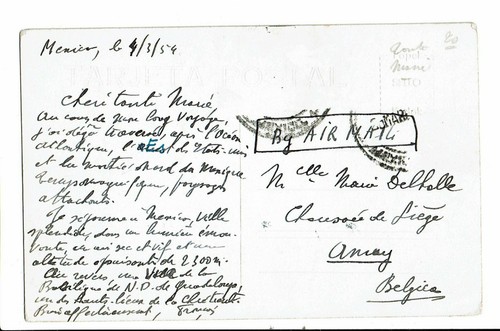 Mexico, le 4/3/54
TARJETA POSTAL
Chère tante Marie,
Au cours de mon long voyage,
j'ai déjà traversé, après l'Océan
Atlantique, l' Est des Etats-unis
et la moitié nord du Mexique
Temps magnifique, paysages
attachants.
Je séjourne à Mexico, ville
splendide, dans une lumière
, un air sec et vif et une
altitude de 2300 m.
Au revers, une vue de la
Basilique de N.D. de Guadeloupe,
un des hauts-lieux de la Chrétienté.
Bien affectueusement,
By AIR MAIL
Melle Marie Delhalle
Chaussée de Liège
Amay
Belgica